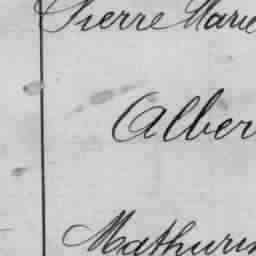 Pierre Marie
Alber
Mathurin